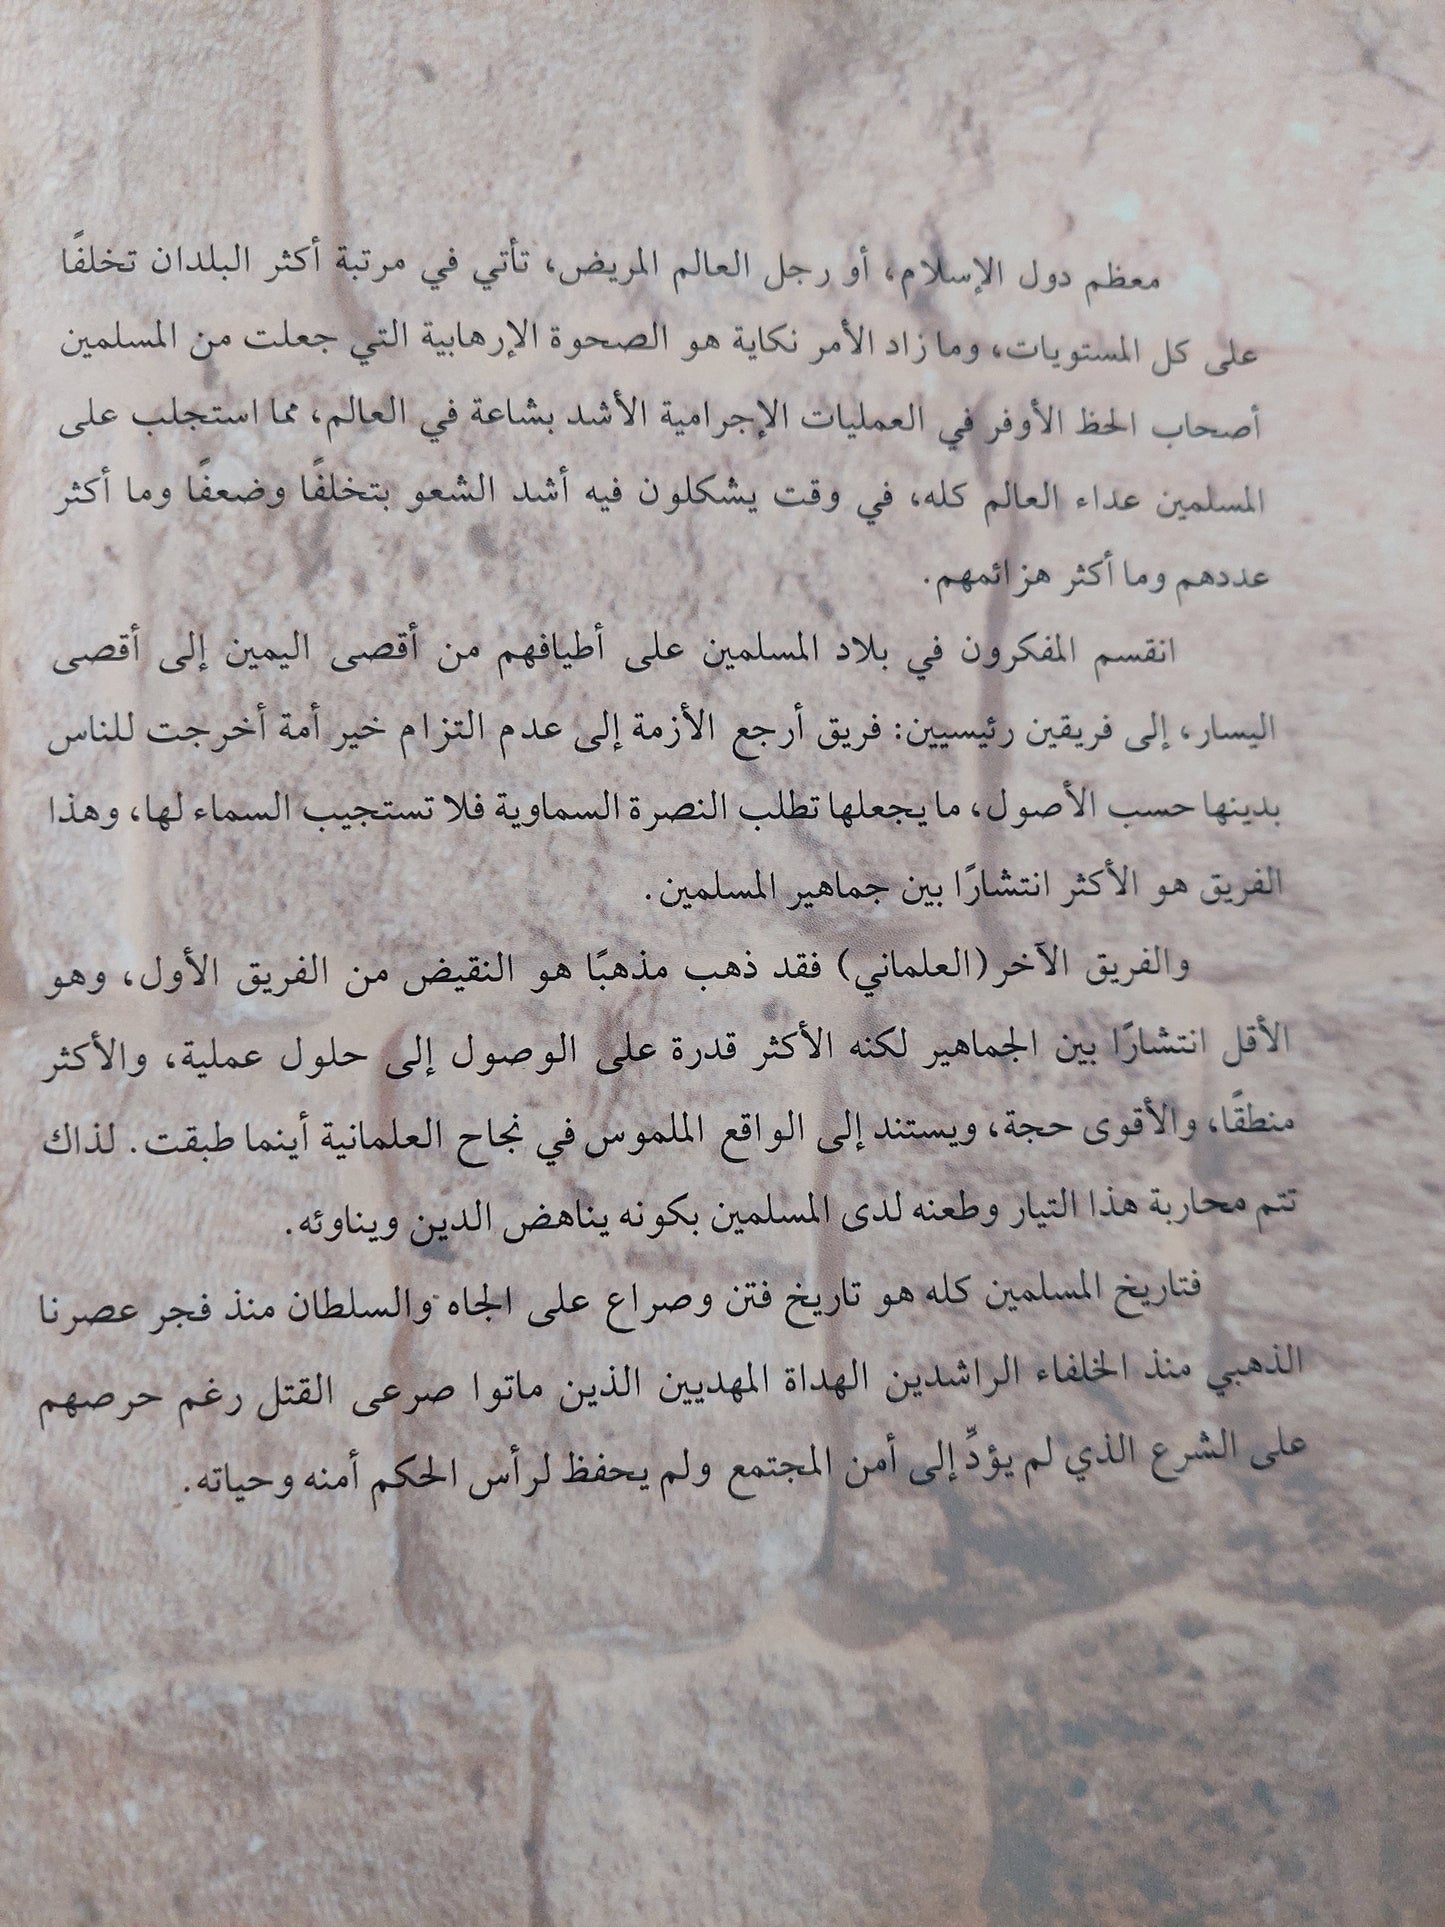 معظم دول الإسلام، أو رجل العالم المريض، تأتي في مرتبة أكثر البلدان تخلفًا
على كل المستويات، وما زاد الأمر نكاية هو الصحوة الإرهابية التي جعلت من المسلمين
أصحاب الحظ الأوفر في العمليات الإجرامية الأشد بشاعة في العالم، مما استجلب على
المسلمين عداء العالم كله، في وقت يشكلون فيه أشد الشعو بتخلفًا وضعفًا وما أكثر
عددهم وما أكثر هزائمهم.
انقسم المفكرون في بلاد المسلمين على أطيافهم من أقصى اليمين إلى أقصى
اليسار، إلى فريقين رئيسيين: فريق أرجع الأزمة إلى عدم التزام خير أمة أخرجت للناس
بدينها حسب الأصول، ما يجعلها تطلب النصرة السماوية فلا تستجيب السماء لها، وهذا
الفريق هو الأكثر انتشارًا بين جماهير المسلمين.
والفريق الآخر (العلماني) فقد ذهب مذهبًا هو النقيض من الفريق الأول، وهو
الأقل انتشارًا بين الجماهير لكنه الأكثر قدرة على الوصول إلى حلول عملية، والأكثر
منطقًا، والأقوى حجة، ويستند إلى الواقع الملموس في نجاح العلمانية أينما طبقت. لذاك
تتم محاربة هذا التيار وطعنه لدى المسلمين بكونه يناهض الدين ويناوئه.
فتاريخ المسلمين كله هو تاريخ فتن وصراع على الجاه والسلطان منذ فجر عصرنا
الذهبي منذ الخلفاء الراشدين الهداة المهديين الذين ماتوا صرعى القتل رغم حرصهم
على الشرع الذي لم يؤدِّ إلى أمن المجتمع ولم يحفظ لرأس الحكم أمنه وحياته.